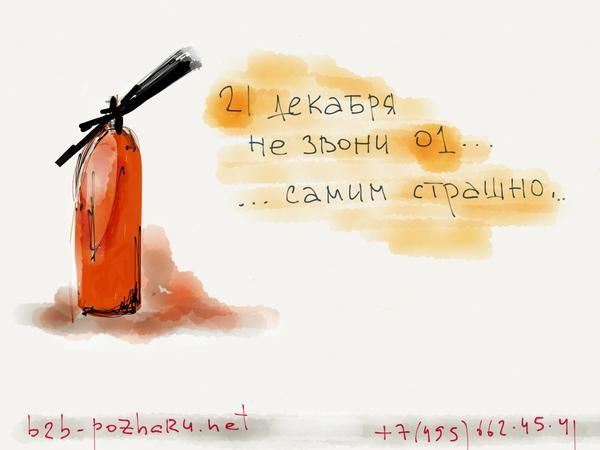 21 декабря
не звони 01...
... самим страшно...
b2b-pozhaRu.net
+7(495)662.45.41